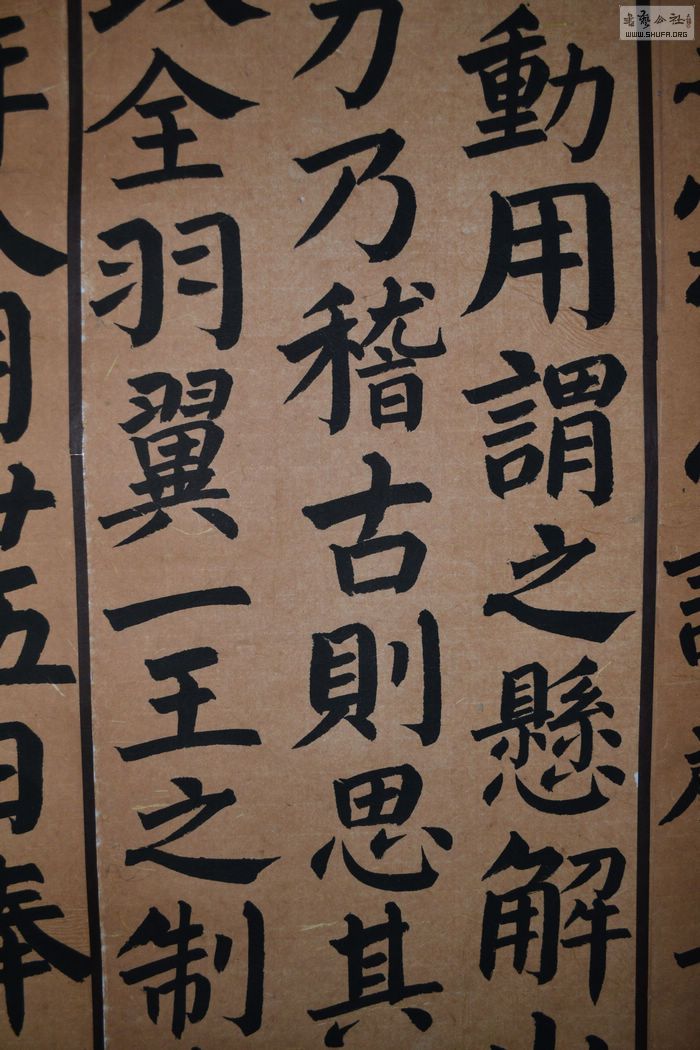 動用謂之懸解
乃稽古則思其
全羽翼一王之制
年八月廿五日奉
書藝公社
WWW.SHUFA.ORG